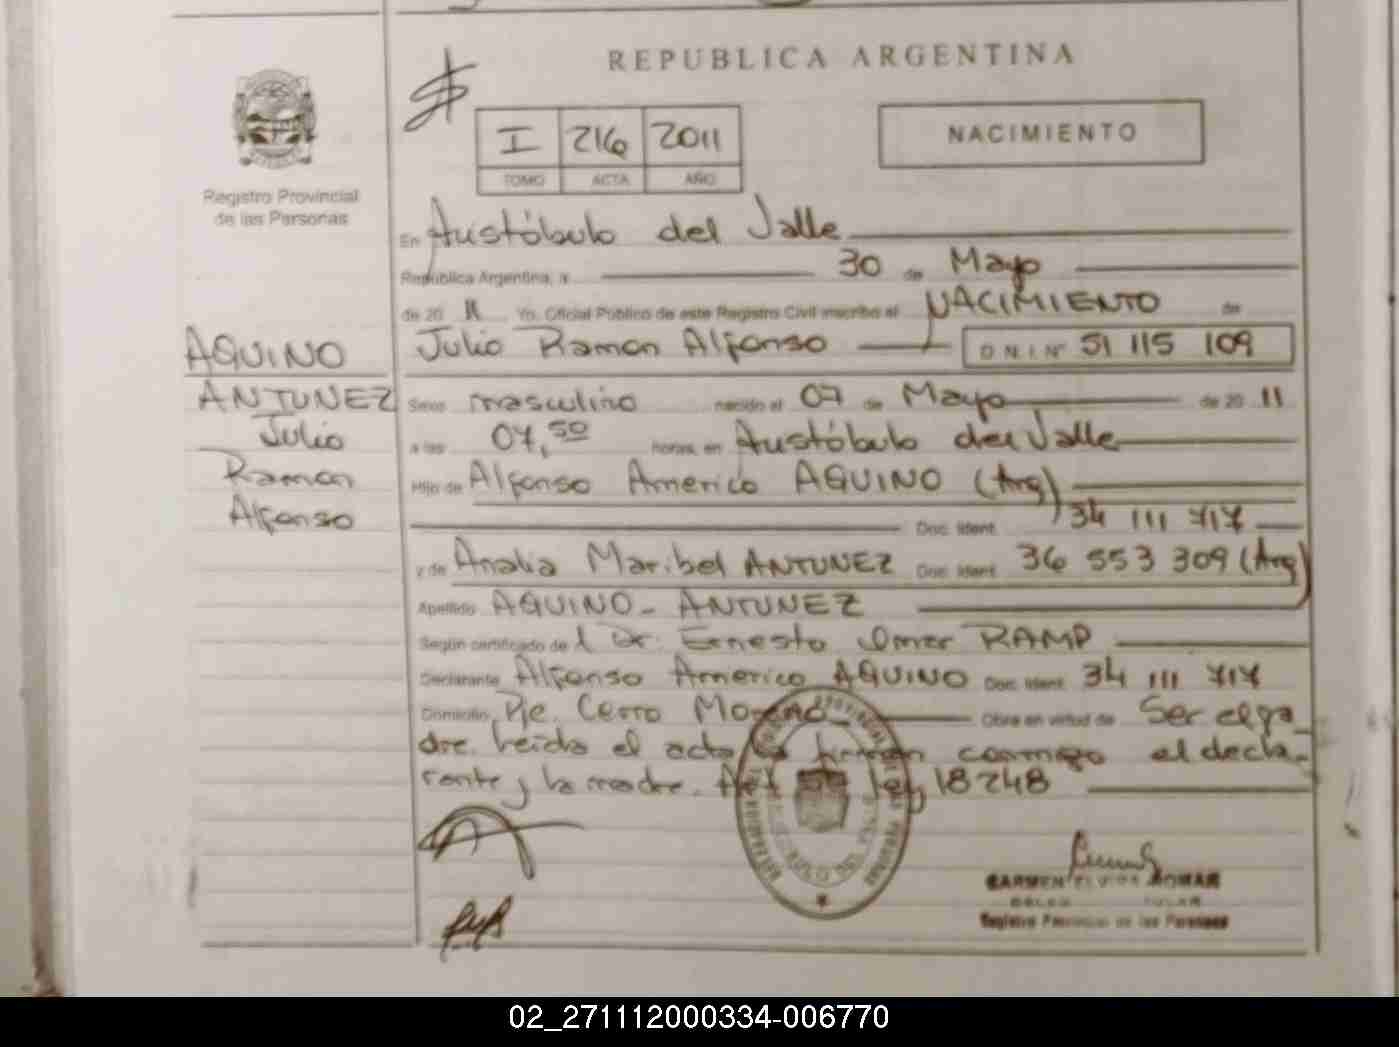 REPUBLICA ARGENTINA
I 216 2011
TOMO ACTA AÑO
NACIMIENTO
Registro Provincial
de las Personas
En Austóbulo del Valle
República Argentina, a 30 de Mayo
de 20 11 Yo, Oficial Público de este Registro Civil inscribo el NACIMIENTO de
Julio Ramon Alfonso D.N.I Nº 51 115 109
AQUINO
ANTUNEZ
Julio
Ramon
Alfonso
Sexo masculino nacido el 07 de Mayo de 20 11
a las 07,50 horas, en Austóbulo del Valle
Hijo de Alfonso Americo AQUINO (Arg)
Doc. Ident. 34 111 717
y de Analia Maribel ANTUNEZ Doc. Ident. 36 553 309 (Arg)
Apellido AQUINO - ANTUNEZ
Según certificado de l Dr. Ernesto Omar RAMP
Declarante Alfonso Americo AQUINO Doc. Ident. 34 111 717
Domicilio Pje. Cerro Moreno Obra en virtud de Ser el pa_
dre. Leida el acta la firman conmigo el decla-
rante y la madre. Ley 18248
CARMEN ELVIRA
Registro Provincial de las Personas
02_271112000334-006770